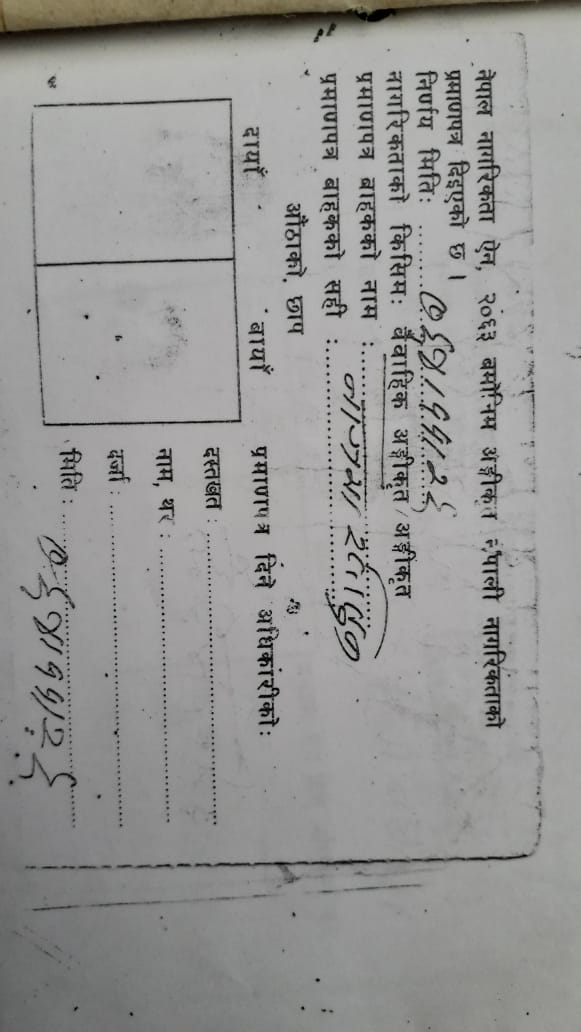 नेपाल नागरिकता ऐन, २०६३ बमोजिम अङ्गीकृत नेपाली नागरिकताको
प्रमाणपत्र दिइएको छ ।
निर्णय मिति:
नागरिकताको किसिम: वैवाहिक अङ्गीकृत/अङ्गीकृत
प्रमाणपत्र बाहकको नाम :
प्रमाणपत्र बाहकको सही :
औंठाको छाप
दायाँ बायाँ
प्रमाणपत्र दिने अधिकारीको:
दस्तखत :
नाम, थर :
दर्जा :
मिति :